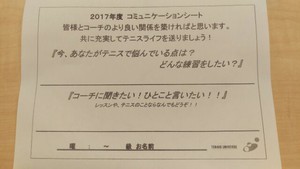 2017年度 コミュニケーションシート
皆様とコーチのより良い関係を築ければと思います。
共に充実してテニスライフを送りましょう！
『今、あなたがテニスで悩んでいる点は？
どんな練習をしたい？』
『コーチに聞きたい！ひとこと言いたい！！』
レッスンや、テニスのことならなんでもどうぞ！！
曜 ： 〜 級 お名前